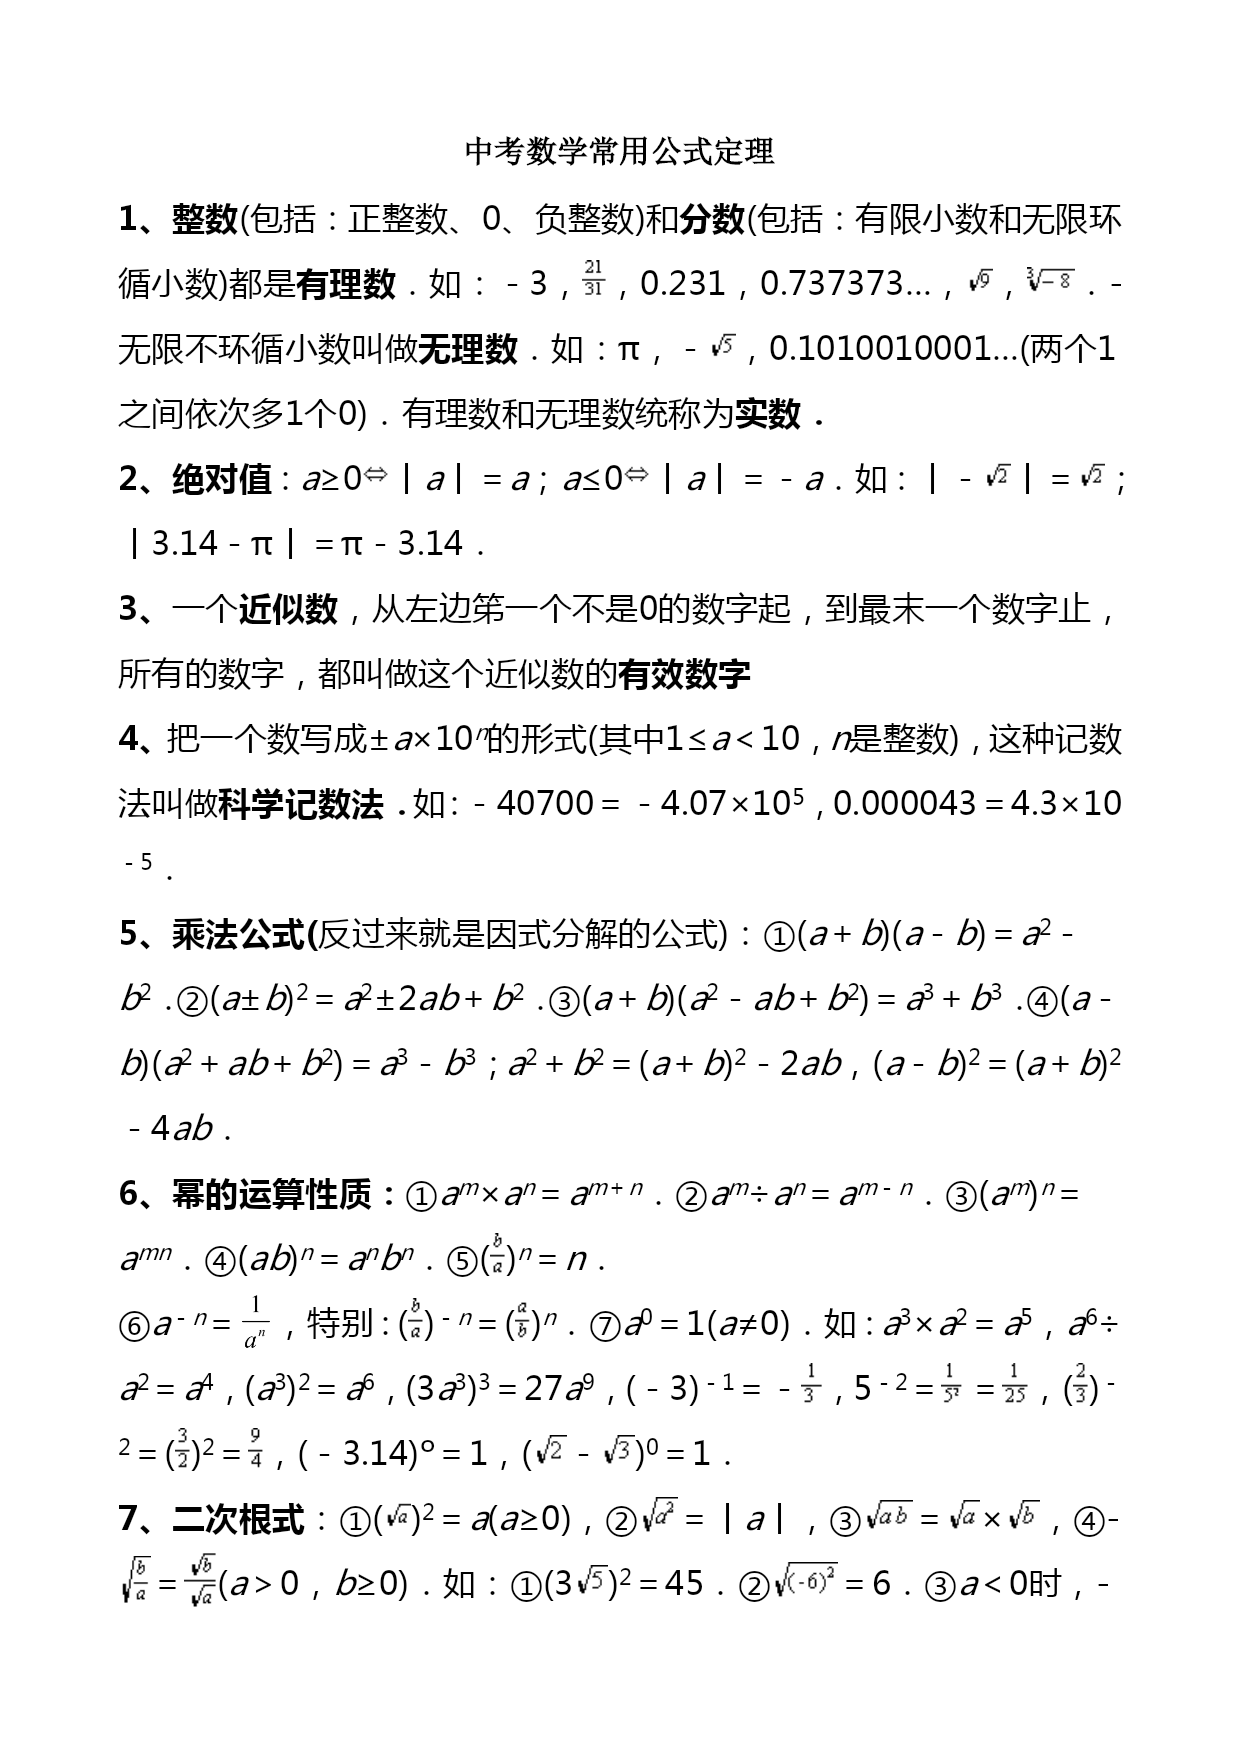 中考数学常用公式定理
1、整数(包括：正整数、0、负整数)和分数(包括：有限小数和无限环
循小数)都是有理数．如：－3，21/31，0.231，0.737373…，√9，∛－8．-
无限不环循小数叫做无理数．如：π，－√5，0.1010010001…(两个1
之间依次多1个0)．有理数和无理数统称为实数．
2、绝对值：a≥0⇔丨a丨＝a；a≤0⇔丨a丨＝－a．如：丨－√2丨＝√2；
丨3.14－π丨＝π－3.14．
3、一个近似数，从左边笫一个不是0的数字起，到最末一个数字止，
所有的数字，都叫做这个近似数的有效数字
4、把一个数写成±a×10ⁿ的形式(其中1≤a＜10，n是整数)，这种记数
法叫做科学记数法．如：－40700＝－4.07×10⁵，0.000043＝4.3×10
⁻⁵．
5、乘法公式(反过来就是因式分解的公式)：①(a＋b)(a－b)＝a²－
b²．②(a±b)²＝a²±2ab＋b²．③(a＋b)(a²－ab＋b²)＝a³＋b³．④(a－
b)(a²＋ab＋b²)＝a³－b³；a²＋b²＝(a＋b)²－2ab，(a－b)²＝(a＋b)²
－4ab．
6、幂的运算性质：①aᵐ×aⁿ＝aᵐ⁺ⁿ．②aᵐ÷aⁿ＝aᵐ⁻ⁿ．③(aᵐ)ⁿ＝
aᵐⁿ．④(ab)ⁿ＝aⁿbⁿ．⑤(b/a)ⁿ＝n．
⑥a⁻ⁿ＝1/aⁿ，特别：(b/a)⁻ⁿ＝(a/b)ⁿ．⑦a⁰＝1(a≠0)．如：a³×a²＝a⁵，a⁶÷
a²＝a⁴，(a³)²＝a⁶，(3a³)³＝27a⁹，(－3)⁻¹＝－1/3，5⁻²＝1/5²＝1/25，(2/3)⁻
²＝(3/2)²＝9/4，(－3.14)º＝1，(√2－√3)⁰＝1．
7、二次根式：①(√a)²＝a(a≥0)，②√a²＝丨a丨，③√ab＝√a×√b，④-
√(b/a)＝√b/√a(a＞0，b≥0)．如：①(3√5)²＝45．②√(-6)²＝6．③a＜0时，-